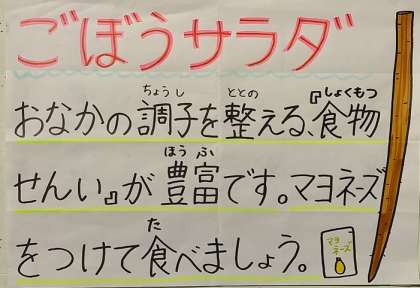 ごぼうサラダ
ちょうし ととの しょくもつ
おなかの調子を整える、『食物
ほうふ
せんい』が豊富です。マヨネーズ
た
をつけて食べましょう。
マヨ
ネーズ